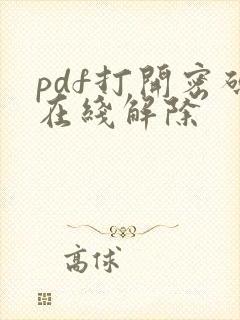 pdf打開密碼
在綫解除
高俅